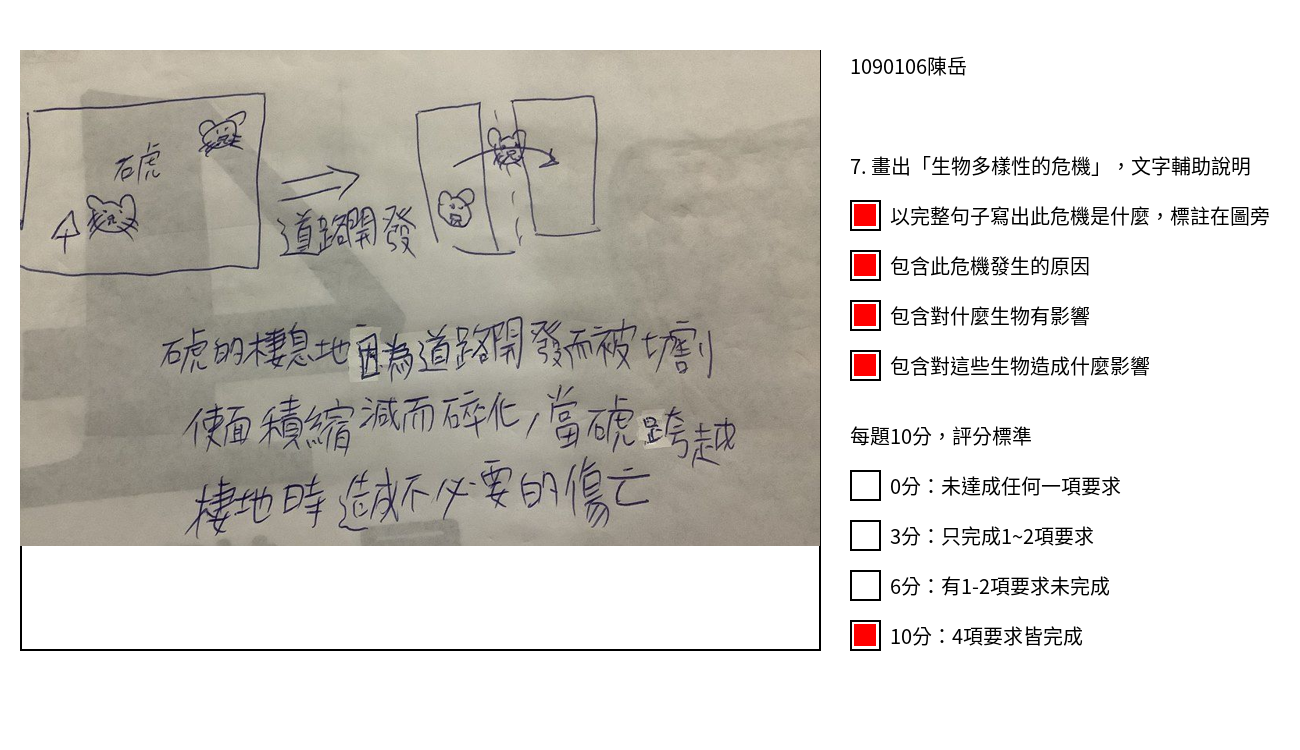 石虎
道路開發
石虎的棲息地因為道路開發而被切割
使面積縮減而碎化,當石虎跨越
棲地時造成不必要的傷亡
1090106陳岳
7. 畫出「生物多樣性的危機」,文字輔助說明
以完整句子寫出此危機是什麼,標註在圖旁
包含此危機發生的原因
包含對什麼生物有影響
包含對這些生物造成什麼影響
每題10分,評分標準
0分:未達成任何一項要求
3分:只完成1~2項要求
6分:有1-2項要求未完成
10分:4項要求皆完成